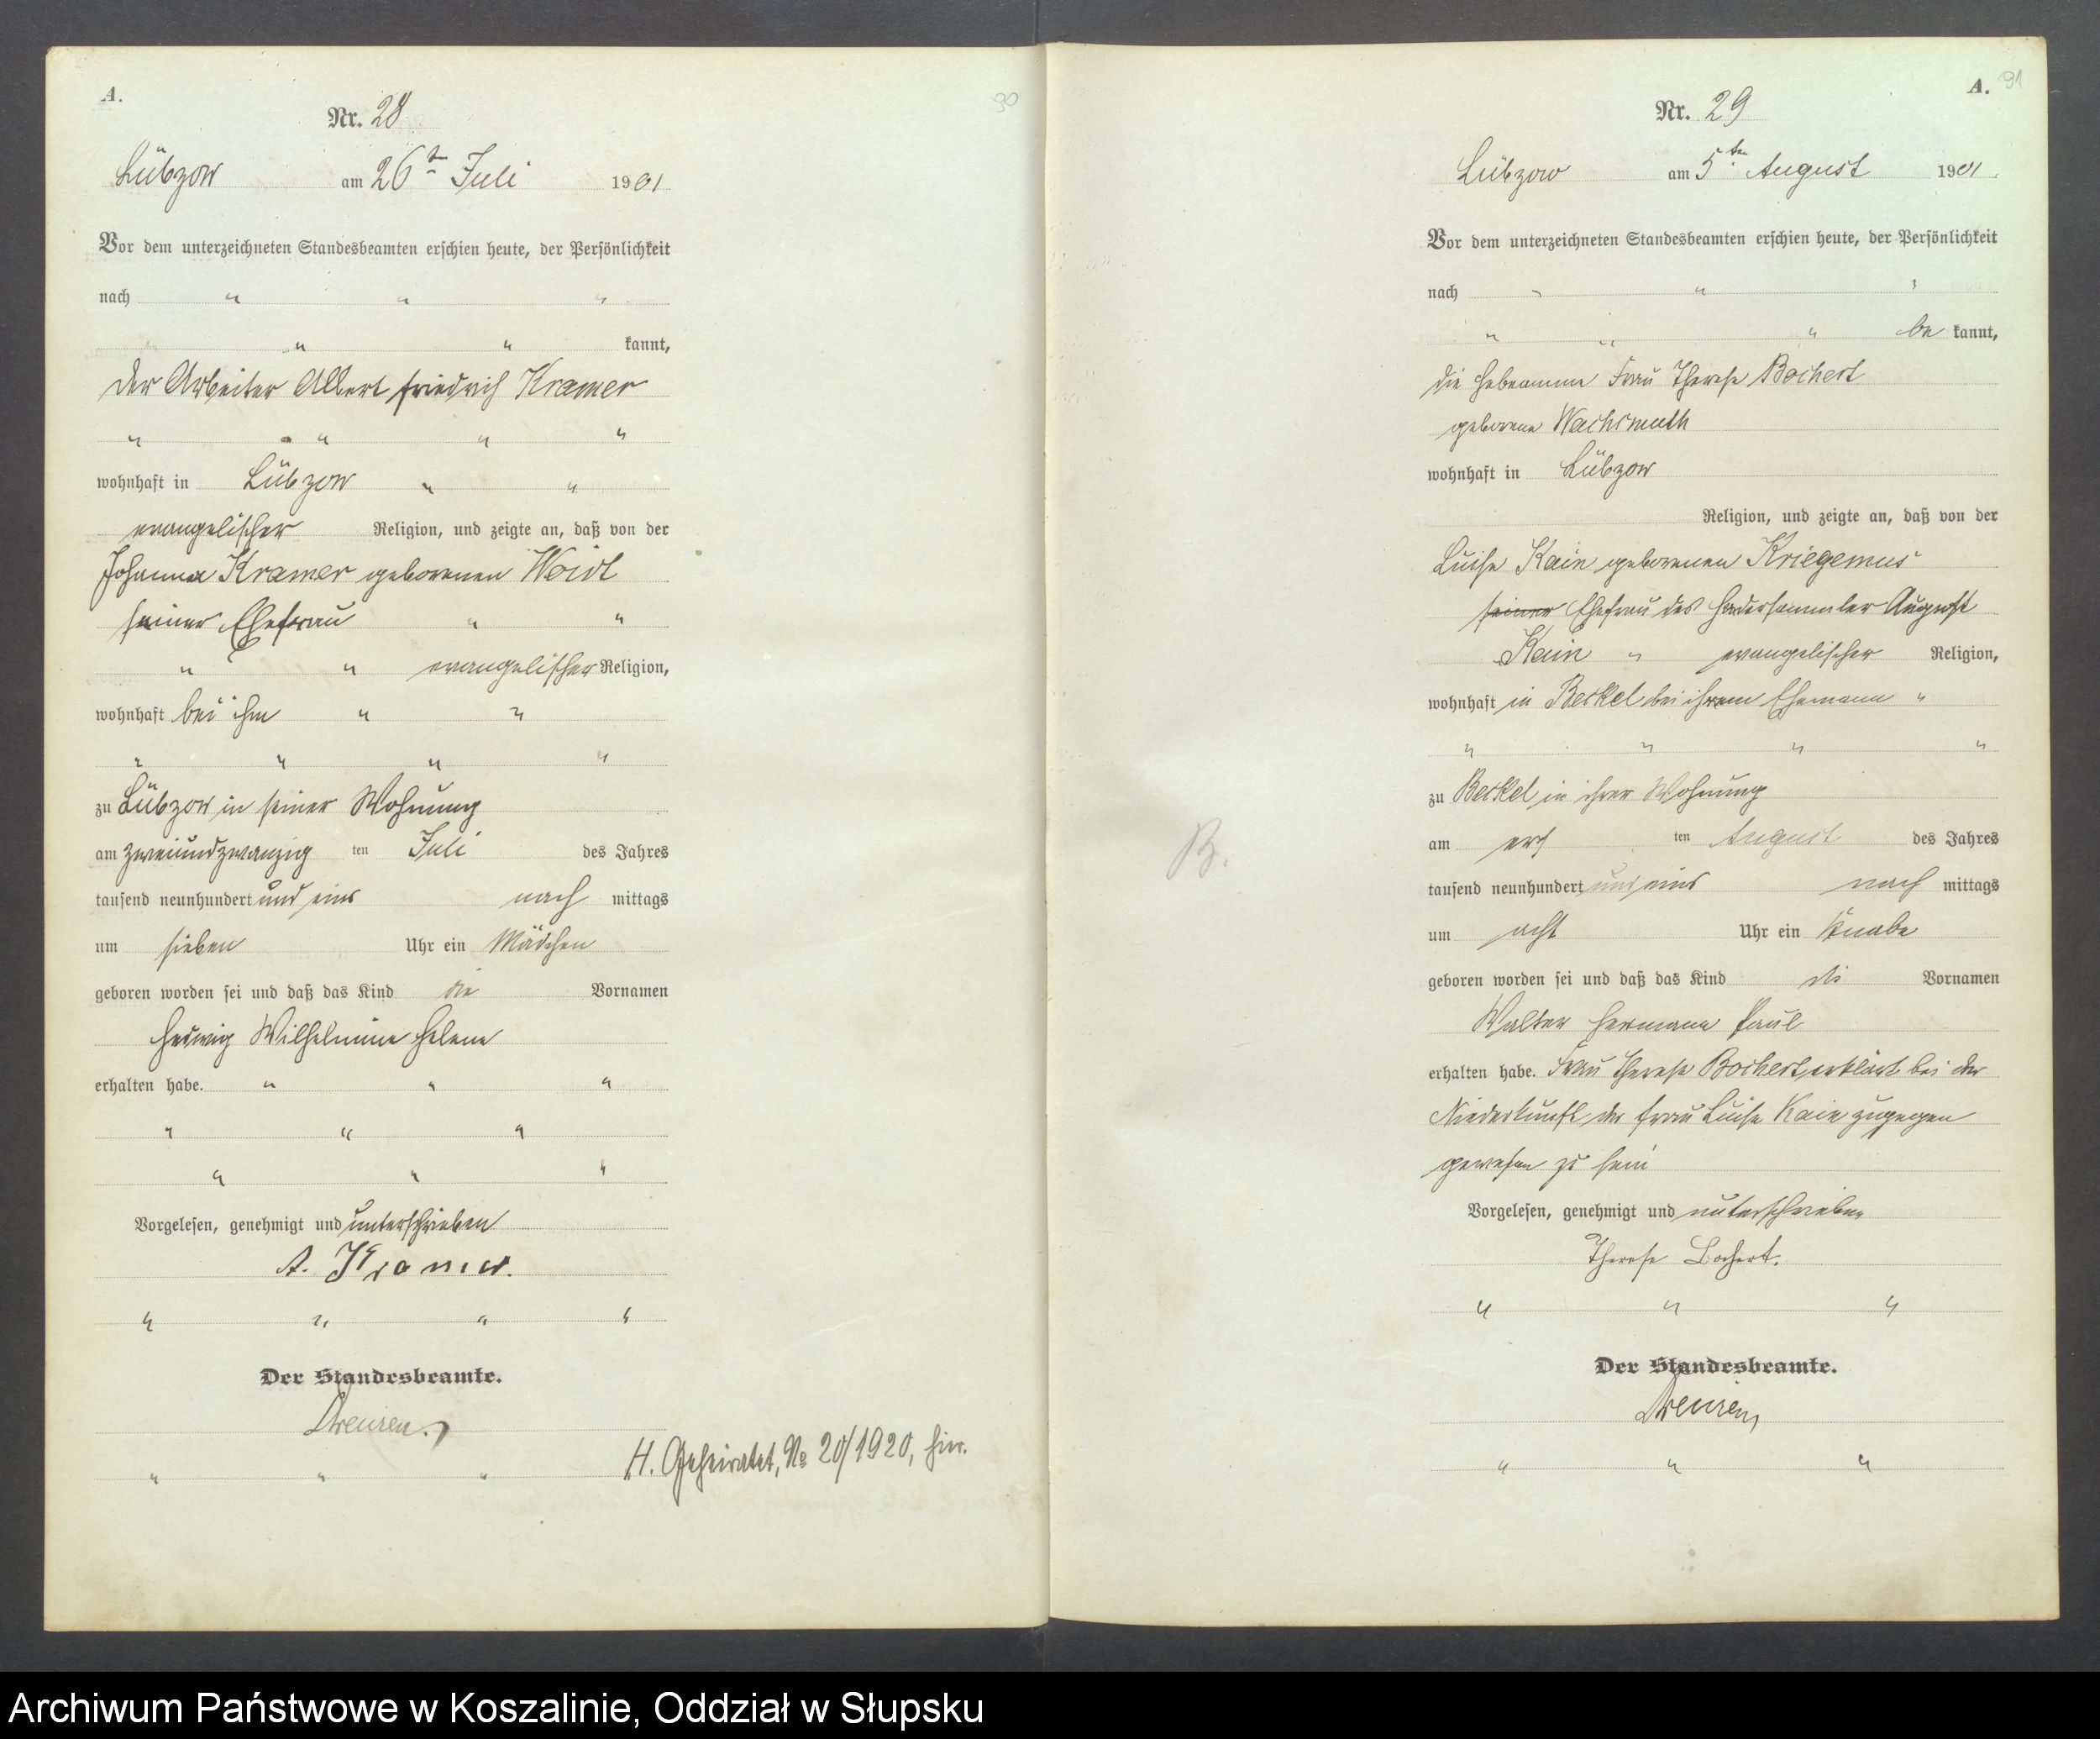 A.
90
Nr. 28
Lübzow am 26ten Juli 1901
Vor dem unterzeichneten Standesbeamten erschien heute, der Persönlichkeit
nach " " "
" " " kannt,
der Arbeiter Albert Friedrich Kramer
" " " "
wohnhaft in Lübzow " "
evangelischer Religion, und zeigte an, daß von der
Johanna Kramer geborenen Woidt
seiner Ehefrau " "
" " evangelischer Religion,
wohnhaft bei ihm " "
" " " "
zu Lübzow in seiner Wohnung
am zweiundzwanzig ten Juli des Jahres
tausend neunhundert und eins nach mittags
um sieben Uhr ein Mädchen
geboren worden sei und daß das Kind die Vornamen
Hedwig Wilhelmine Helene
erhalten habe. " " "
" " "
" " "
Vorgelesen, genehmigt und unterschrieben
A. Kramer.
" " " "
Der Standesbeamte.
" " "
H. Geheiratet, No 20/1920, hier.
A. 91
Nr. 29
Lübzow am 5ten August 1901.
Vor dem unterzeichneten Standesbeamten erschien heute, der Persönlichkeit
nach " " "
" " " be kannt,
die Hebeamme Frau Therese Bochert
geborene Wachsmuth
wohnhaft in Lübzow
Religion, und zeigte an, daß von der
Luise Kain geborenen
seiner Ehefrau des Hadersammler August
Kain " evangelischer Religion,
wohnhaft in Beckel bei ihrem Ehemann "
" " " "
zu Beckel in ihrer Wohnung
am ers ten August des Jahres
tausend neunhundert und eins nach mittags
um acht Uhr ein Knabe
geboren worden sei und daß das Kind die Vornamen
Walter Hermann Paul
erhalten habe. Frau Therese Bochert erklärt bei der
Niederkunft der Frau Luise Kain zugegen
gewesen zu sein
B.
Vorgelesen, genehmigt und unterschrieben
Therese Bochert.
" " "
Der Standesbeamte.
" " "
Archiwum Państwowe w Koszalinie, Oddział w Słupsku